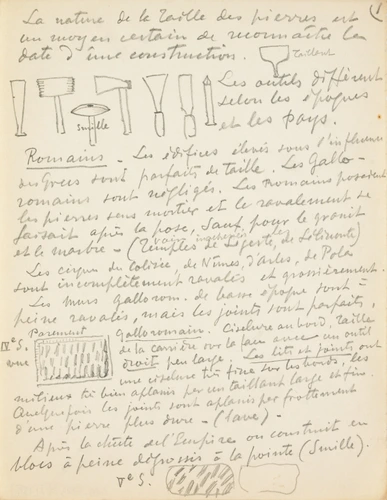 1
La nature de la taille des pierres est
un moyen certain de reconnaître la
date d'une construction.
Taillant
Les outils diffèrent
selon les époques
et les pays.
Smille
Romains - Les édifices élevés sous l'influence
des Grecs sont parfaits de taille. Les Gallo-
romains sont négligés. Les Romains posaient
les pierres sans mortier et le ravalement se
faisait après la pose, sauf pour le granit
et le marbre - (Temples de Ségeste, de Sélinonte)
Les cirques du Colisée, de Nimes, d'Arles, de Pola
sont incomplètement ravalés et grossièrement.
Les murs gallorom. de basse époque sont à
peine ravalés, mais les joints sont parfaits,
Parement
IVe S.
Galloromain. Ciselure au bord, taille
de la carrière sur la face avec un outil
droit peu large. Les lits et joints ont
une ciselure très fine sur les bords, les
milieux très bien aplanis par un taillant large et fin.
Quelquefois les joints sont aplanis par frottement
d'une pierre plus dure -
Après la chute de l'Empire on construit en
blocs à peine dégrossis à la pointe (Smille).
Ve S.